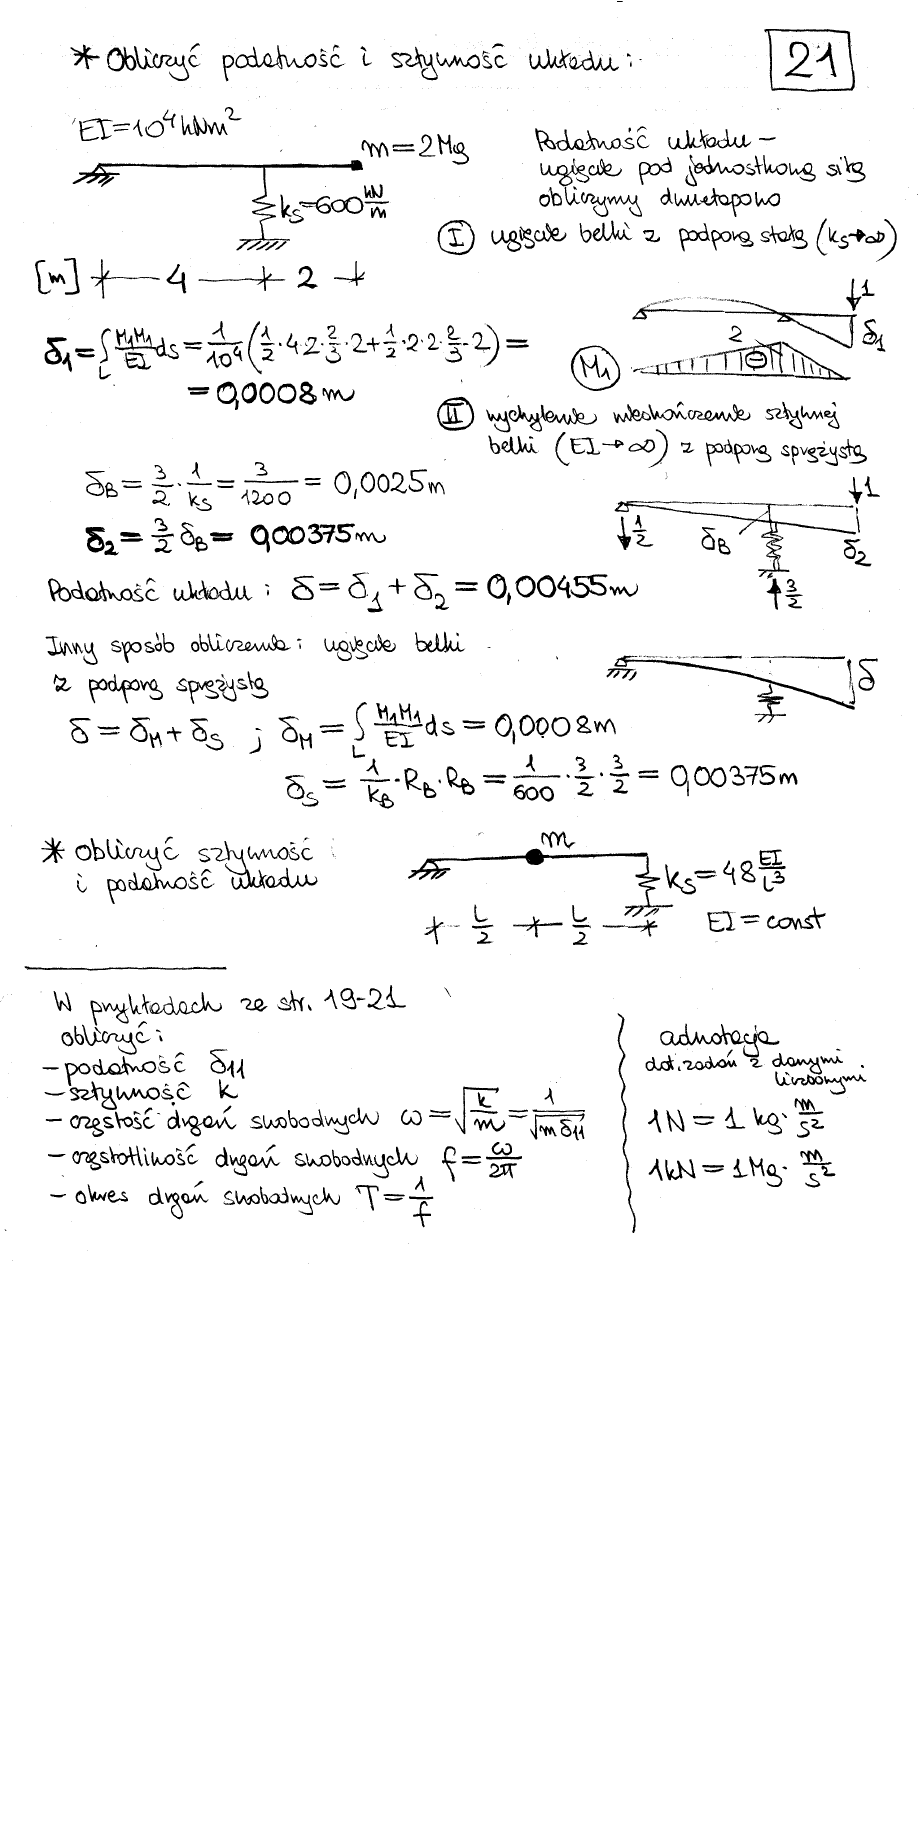 * Obliczyć podatność i sztywność układu:
21
EI=10⁴kNm²
m=2Mg
kₛ=600 kN/m
[m] 4 2
Podatność układu –
ugięcie pod jednostkową siłą
obliczymy dwuetapowo
(I) ugięcie belki z podporą stałą (kₛ→∞)
1
δ₁
2
M₁
δ₁=∫_L M₁M₁/EI ds = 1/10⁴ (1/2·4·2·2/3·2+1/2·2·2·2/3·2)=
=0,0008m
(II) wychylenie nieskończenie sztywnej
belki (EI→∞) z podporą sprężystą
δ_B = 3/2 · 1/kₛ = 3/1200 = 0,0025m
δ₂ = 3/2 δ_B = 0,00375m
1
1/2
δ_B
δ₂
3/2
Podatność układu: δ=δ₁+δ₂=0,00455m
Inny sposób obliczenia: ugięcie belki
z podporą sprężystą
δ
δ=δ_M+δ_S ; δ_M=∫_L M₁M₁/EI ds=0,0008m
δ_S = 1/k_B · R_B · R_B = 1/600 · 3/2 · 3/2 = 0,00375m
* Obliczyć sztywność
i podatność układu
m
kₛ=48 EI/L³
L/2 L/2
EI=const
W przykładach ze str. 19-21
obliczyć:
– podatność δ₁₁
– sztywność k
– częstość drgań swobodnych ω=√(k/m)=1/√(mδ₁₁)
– częstotliwość drgań swobodnych f=ω/2π
– okres drgań swobodnych T=1/f
adnotacja
dot. zadań z danymi
liczbowymi
1N=1 kg· m/s²
1kN=1Mg· m/s²